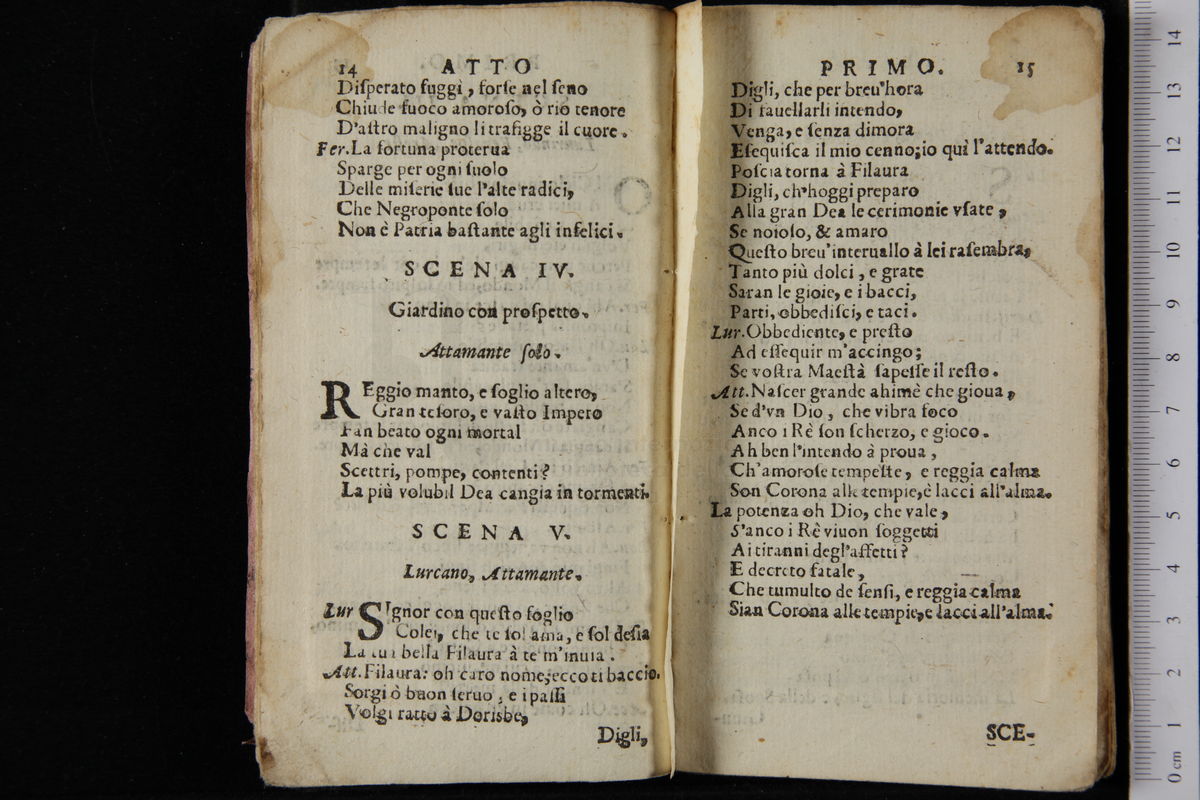 14 ATTO
Diſperato fuggì, forſe nel ſeno
Chiude fuoco amoroſo, ò rio tenore
D'aſtro maligno li trafigge il cuore.
Fer. La fortuna proterua
Sparge per ogni ſuolo
Delle miſerie ſue l'alte radici,
Che Negroponte ſolo
Non è Patria baſtante agli infelici.
SCENA IV.
Giardino con proſpetto.
Attamante ſolo.
REggio manto, e ſoglio altero,
Gran teſoro, e vaſto Impero
Fan beato ogni mortal
Mà che val
Scettri, pompe, contenti?
La più volubil Dea cangia in tormenti.
SCENA V.
Lurcano, Attamante.
Lur SIgnor con queſto foglio
Colei, che te ſol ama, e ſol deſia
La tua bella Filaura à te m'inuia.
Att. Filaura: oh caro nome, ecco ti baccio.
Sorgi ò buon ſeruo, e i paſſi
Volgi ratto à Dorisbe,
Digli,
PRIMO. 15
Digli, che per breu'hora
Di fauellarli intendo,
Venga, e ſenza dimora
Eſequiſca il mio cenno; io quì l'attendo.
Poſcia torna à Filaura
Digli, ch'hoggi preparo
Alla gran Dea le cerimonie vſate,
Se noioſo, & amaro
Queſto breu'interuallo à lei raſembra,
Tanto più dolci, e grate
Saran le gioie, e i bacci,
Parti, obbediſci, e taci.
Lur. Obbediente, e preſto
Ad eſſequir m'accingo;
Se voſtra Maeſtà ſapeſſe il reſto.
Att. Naſcer grande ahimè che gioua,
Se d'vn Dio, che vibra foco
Anco i Rè ſon ſcherzo, e gioco.
Ah ben l'intendo à proua,
Ch'amoroſe tempeſte, e reggia calma
Son Corona alle tempie, è lacci all'alma.
La potenza oh Dio, che vale,
S'anco i Rè viuon ſoggetti
Ai tiranni degl'affetti?
E decreto fatale,
Che tumulto de ſenſi, e reggia calma
Sian Corona alle tempie, e lacci all'alma.
SCE-